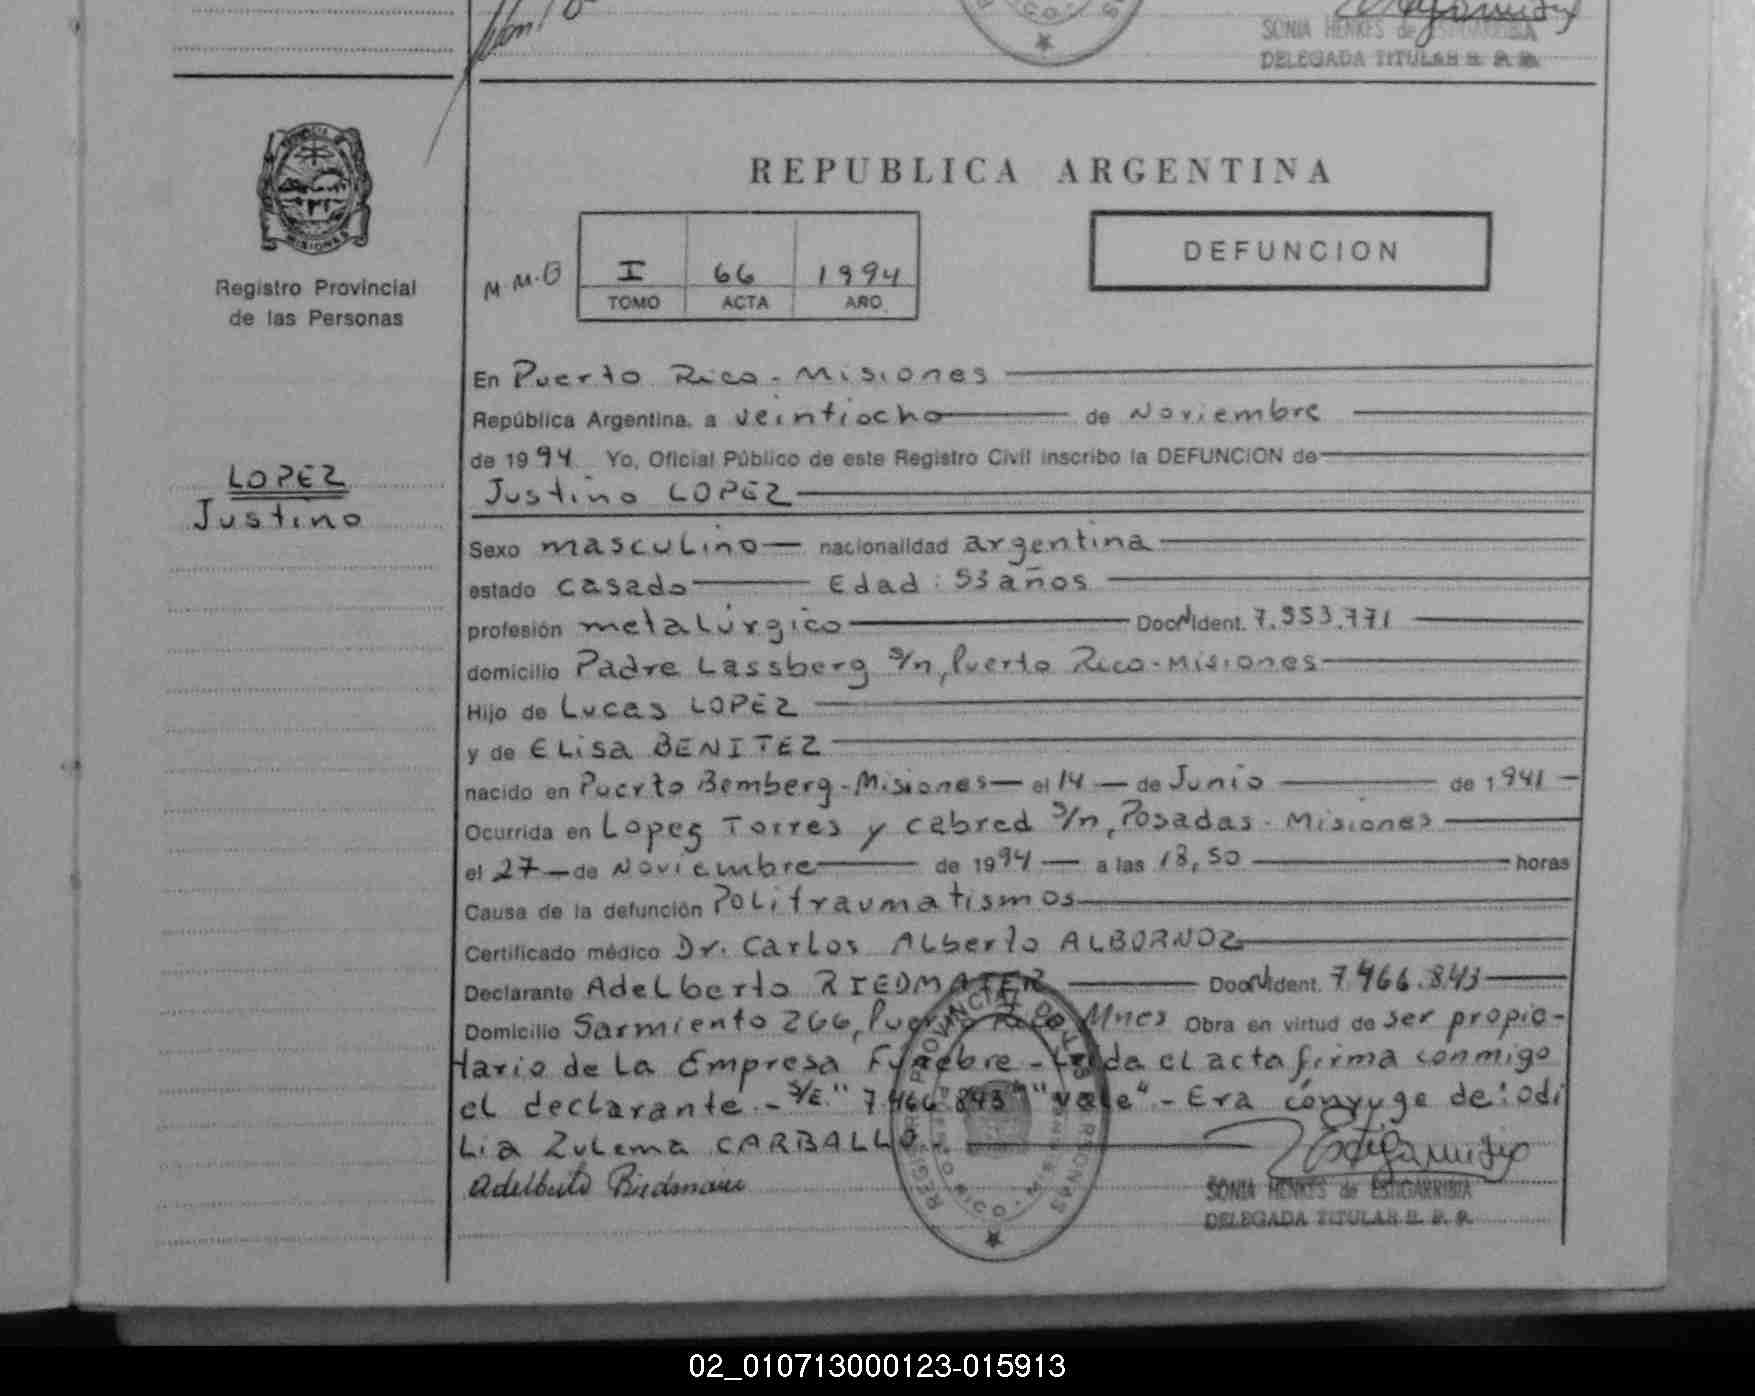 SONIA HENKES de ESTIGARRIBIA
DELEGADA TITULAR R. P. P.
MISIONES
Registro Provincial
de las Personas
LOPEZ
Justino
REPUBLICA ARGENTINA
M.M.O
I 66 1994
TOMO ACTA AÑO
DEFUNCION
En Puerto Rico - Misiones
República Argentina, a veintiocho de Noviembre
de 1994 Yo, Oficial Público de este Registro Civil inscribo la DEFUNCION de
Justino LOPEZ
Sexo masculino nacionalidad argentina
estado casado Edad: 53 años
profesión metalúrgico Doc. N Ident. 7.553.771
domicilio Padre Lassberg s/n, Puerto Rico - Misiones
Hijo de Lucas LOPEZ
y de ELisa BENITEZ
nacido en Puerto Bemberg - Misiones el 14 de Junio de 1941
Ocurrida en Lopez Torres y cabred s/n, Posadas - Misiones
el 27 de Noviembre de 1994 a las 18,50 horas
Causa de la defunción Politraumatismos
Certificado médico Dr. Carlos Alberto ALBORNOZ
Declarante Adelberto RIEDMAIER Doc. N Ident. 7.466.843
Domicilio Sarmiento 266, Puerto Rico Mnes Obra en virtud de ser propie-
tario de la Empresa Fúnebre - Leída el acta firma conmigo
el declarante - s/E." 7.466.843" "vale" - Era cónyuge de: Odi
Lia Zulema CARBALLO.
Adelberto Riedmaier
REGISTRO PROVINCIAL DE LAS PERSONAS
SONIA HENKES de ESTIGARRIBIA
DELEGADA TITULAR R. P. P.
02_010713000123-015913